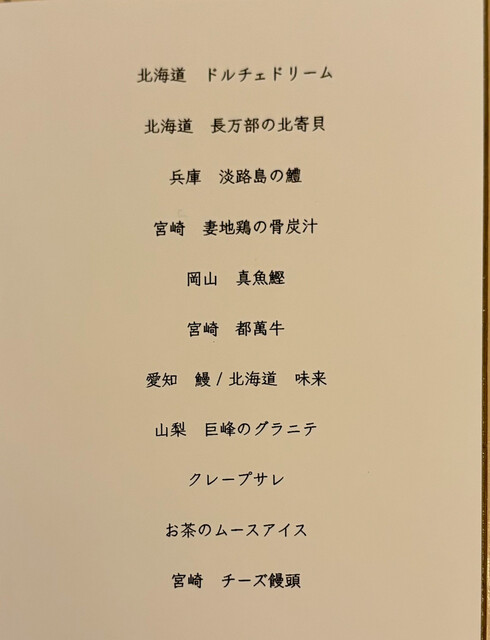 北海道　ドルチェドリーム
北海道　長万部の北寄貝
兵庫　淡路島の鱧
宮崎　妻地鶏の骨炭汁
岡山　真魚鰹
宮崎　都萬牛
愛知　鰻 / 北海道　味来
山梨　巨峰のグラニテ
クレープサレ
お茶のムースアイス
宮崎　チーズ饅頭